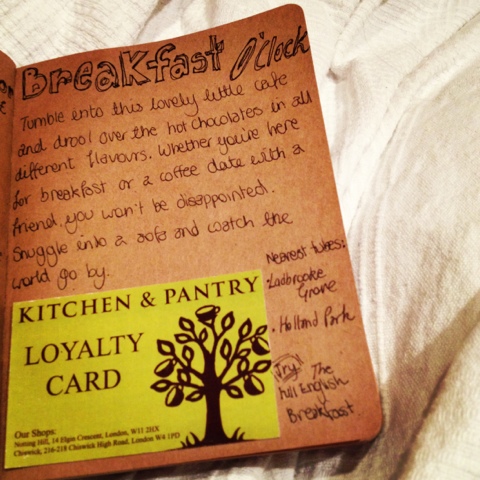 Breakfast O'Clock
Tumble into this lovely little cafe
and drool over the hot chocolates in all
different flavours. Whether you're here
for breakfast or a coffee date with a
friend, you won't be disappointed.
Snuggle into a sofa and watch the
world go by.
Nearest tubes:
• Ladbrooke
Grove
• Holland Park
Try The
full English
Breakfast
KITCHEN & PANTRY
LOYALTY
CARD
Our Shops:
Notting Hill, 14 Elgin Crescent, London, W11 2HX
Chiswick, 216-218 Chiswick High Road, London W4 1PD